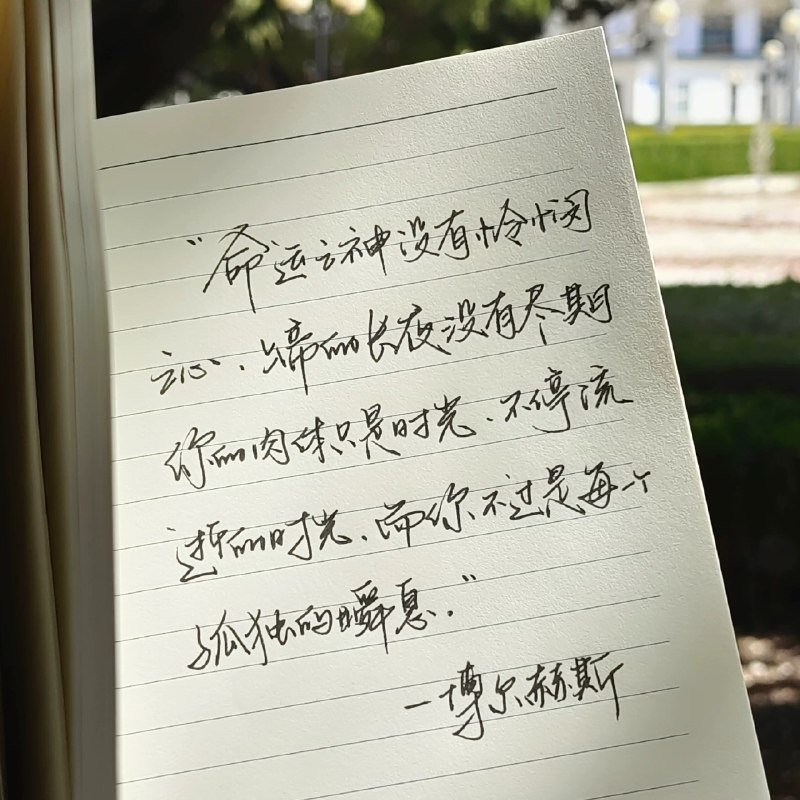 “命运之神没有怜悯
之心、上帝的长夜没有尽期
你的肉体只是时光、不停流
逝的时光、而你不过是每一个
孤独的瞬息.”
一博尔赫斯